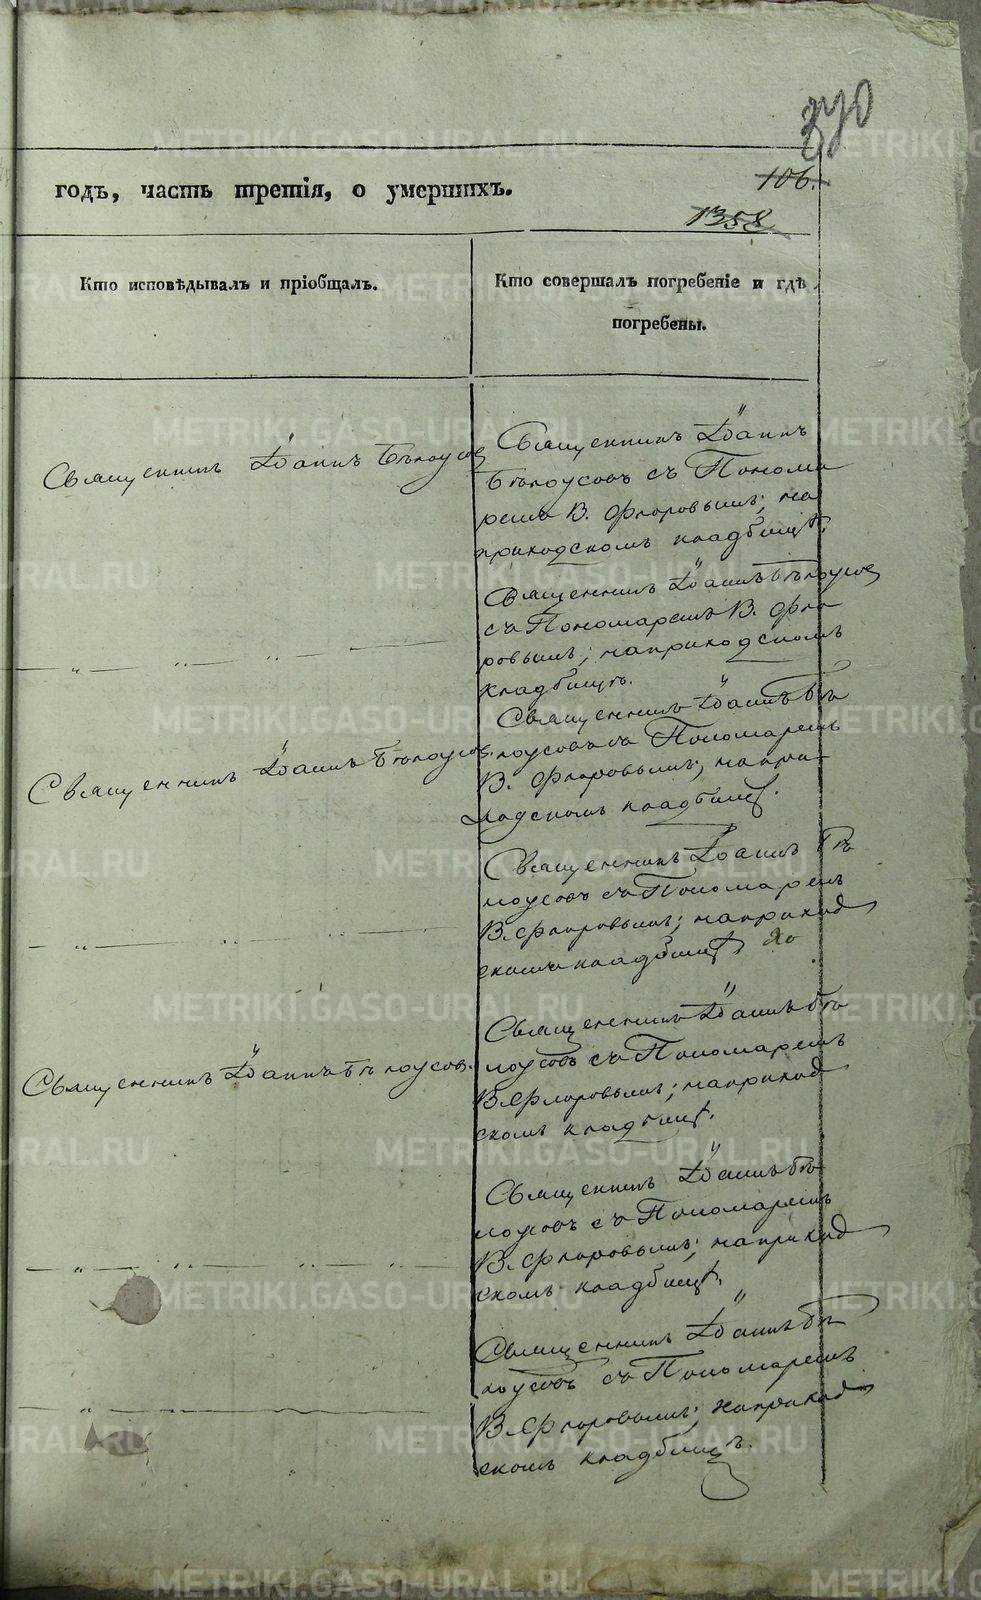 370
106.
годъ, часть третія, о умершихъ.
1358
Кто исповѣдывалъ и пріобщалъ.
Кто совершалъ погребеніе и гдѣ
погребены.
Священникъ Іоаннъ Бѣлоусов
Священникъ Іоаннъ
Бѣлоусовъ съ Понома
ремъ В. Флоровымъ; на
приходскомъ кладбищѣ.
— „ — „ — „ —
Священникъ Іоаннъ Бѣлоусов
съ Пономаремъ В. Фло
ровымъ; на приходскомъ
кладбищѣ.
Священникъ Іоаннъ Бѣлоусов.
Священникъ Іоаннъ Бѣ
лоусовъ съ Пономаремъ
В. Флоровымъ; на при
ходскомъ кладбищѣ.
— „ — „ — „ —
Священникъ Іоаннъ Бѣ
лоусовъ съ Пономаремъ
В. Флоровымъ; на приход
скомъ кладбищѣ
Священникъ Іоаннъ Бѣлоусов.
Священникъ Іоаннъ Бѣ
лоусовъ съ Пономаремъ
В. Флоровымъ; на приход
скомъ кладбищѣ.
— „ — „ — „ — „ —
Священникъ Іоаннъ Бѣ
лоусовъ съ Пономаремъ
В. Флоровымъ; на приход
скомъ кладбищѣ.
— „ —
Священникъ Іоаннъ Бѣ
лоусовъ съ Пономаремъ
В. Флоровымъ; на приход
скомъ кладбищѣ.
METRIKI.GASO-URAL.RU